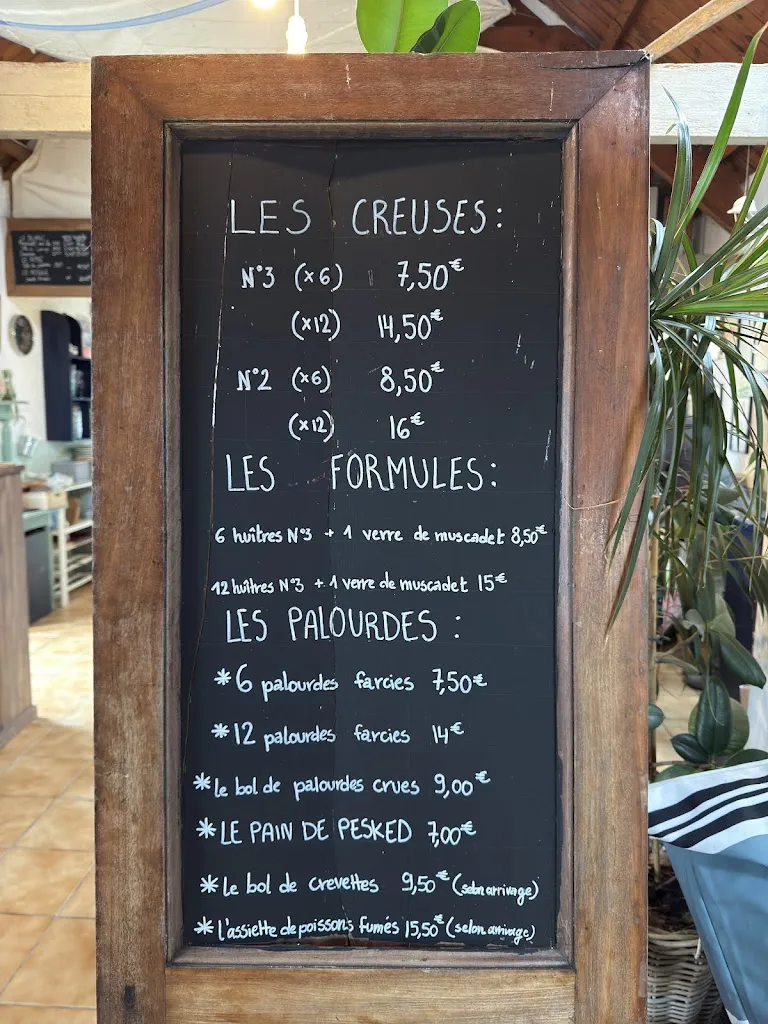 LES CREUSES:
N°3 (x6) 7,50€
(x12) 14,50€
N°2 (x6) 8,50€
(x12) 16€
LES FORMULES:
6 huîtres N°3 + 1 verre de muscadet 8,50€
12 huîtres N°3 + 1 verre de muscadet 15€
LES PALOURDES :
*6 palourdes farcies 7,50€
*12 palourdes farcies 14€
*le bol de palourdes crues 9,00€
*LE PAIN DE PESKED 7,00€
*le bol de crevettes 9,50€ (selon arrivage)
*l'assiette de poissons fumés 15,50€ (selon arrivage)